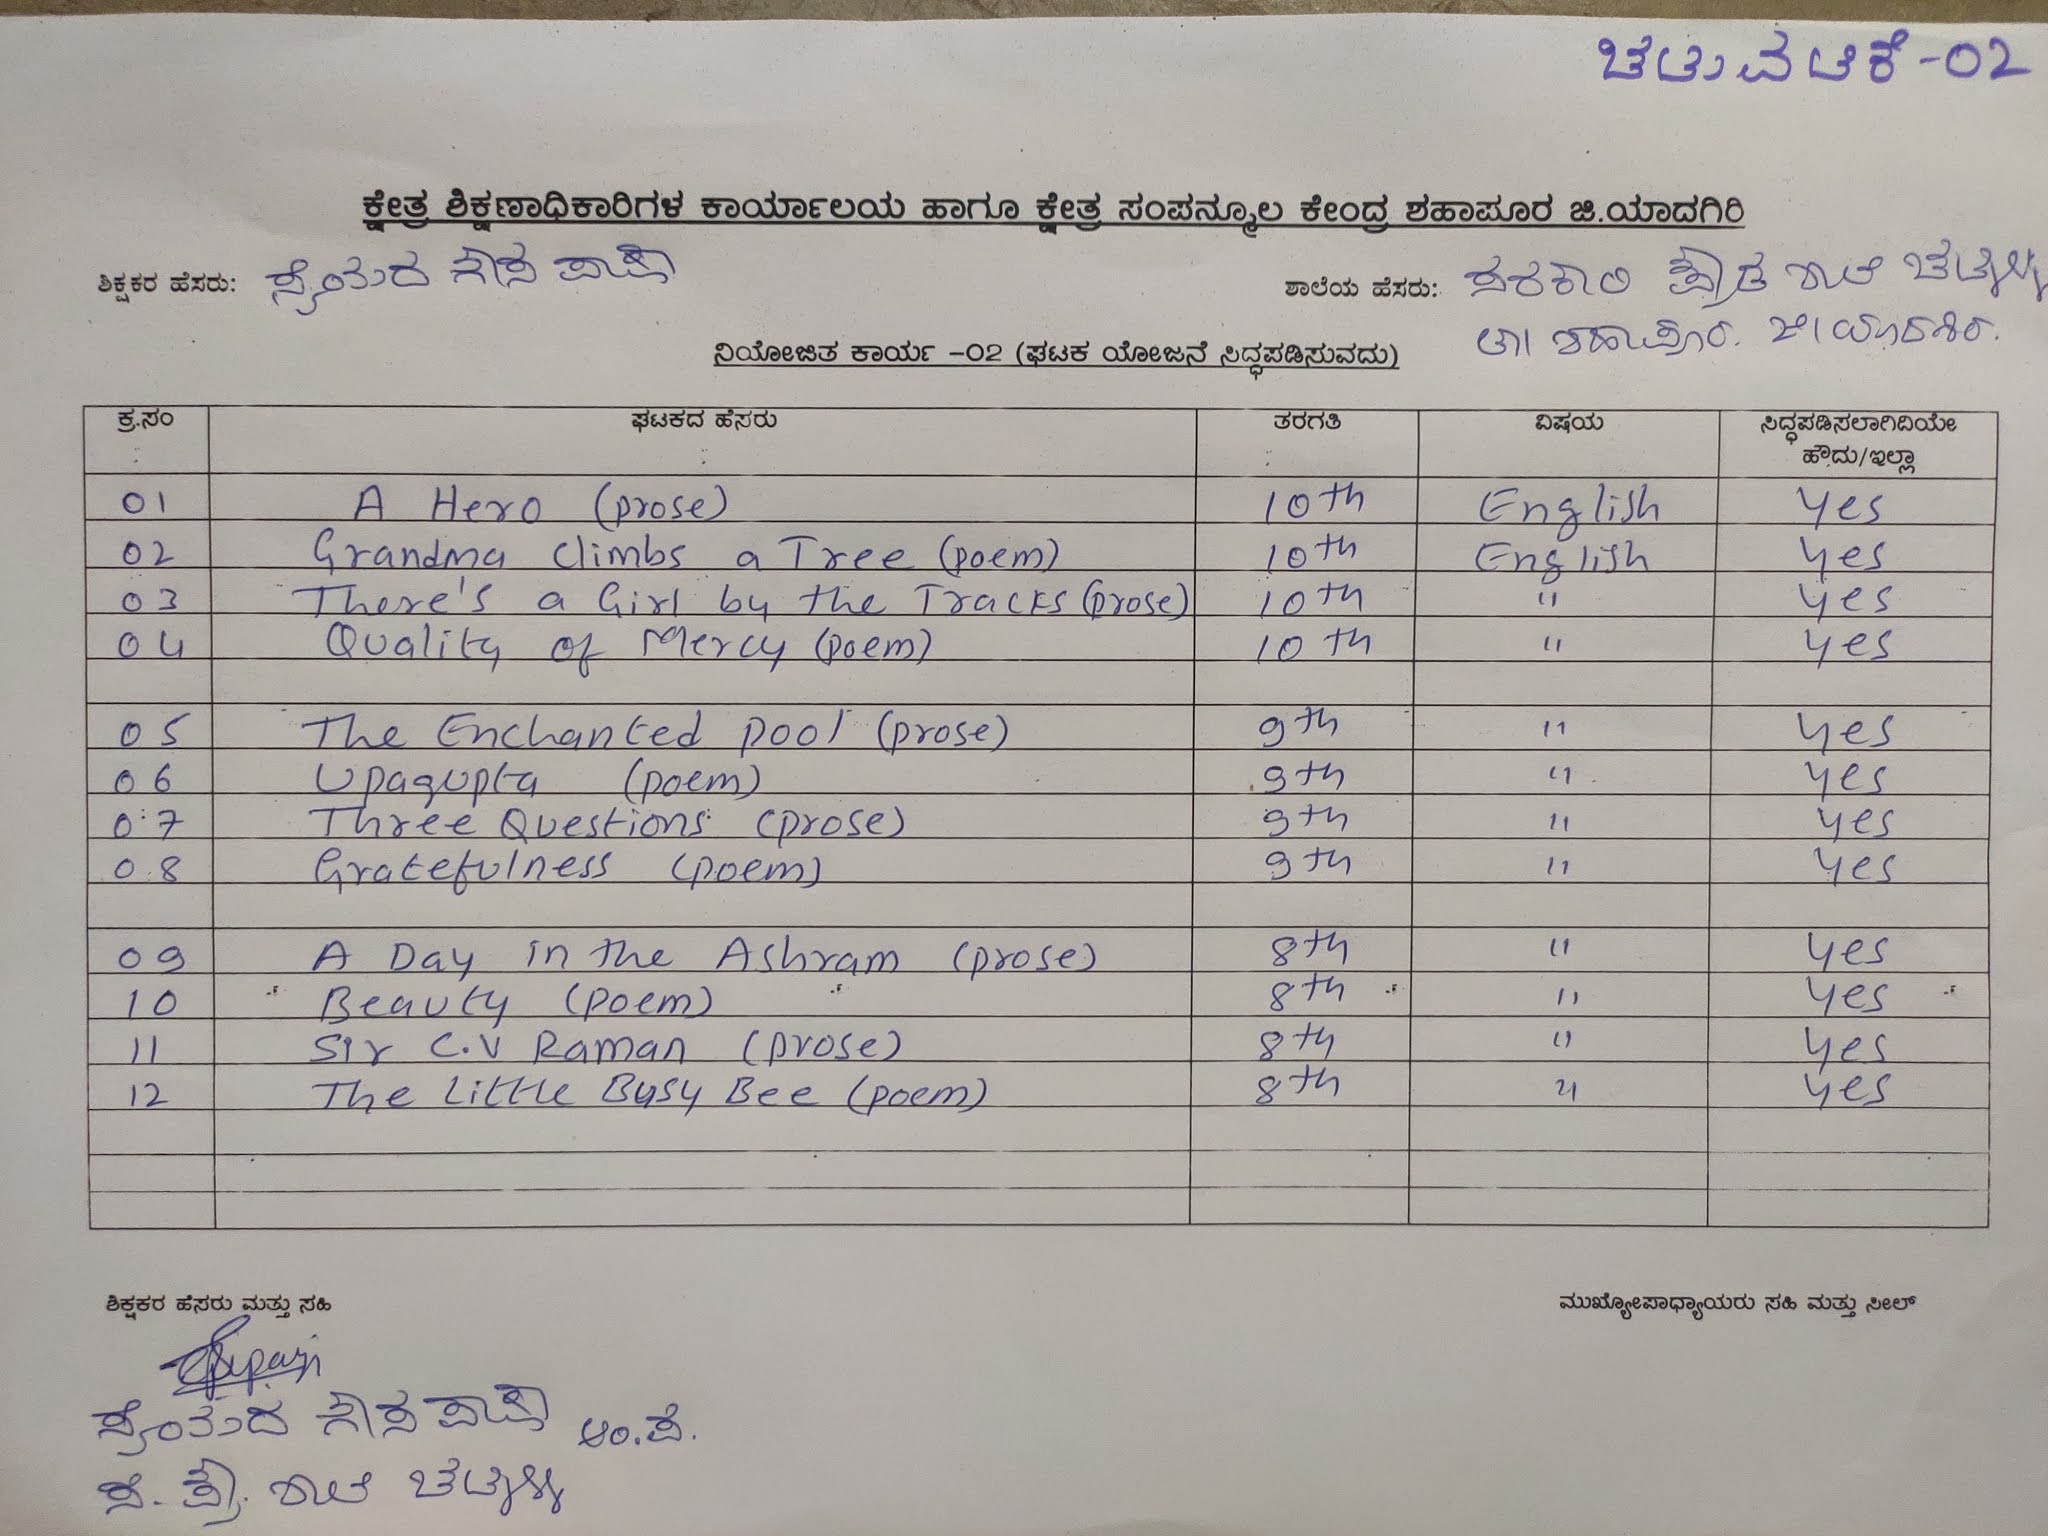 ಚಟುವಟಿಕೆ-02
ಕ್ಷೇತ್ರ ಶಿಕ್ಷಣಾಧಿಕಾರಿಗಳ ಕಾರ್ಯಾಲಯ ಹಾಗೂ ಕ್ಷೇತ್ರ ಸಂಪನ್ಮೂಲ ಕೇಂದ್ರ ಶಹಾಪೂರ ಜಿ.ಯಾದಗಿರಿ
ಶಿಕ್ಷಕರ ಹೆಸರು: ಸೈಯದ ಗೌಸ ಪಾಷಾ ಶಾಲೆಯ ಹೆಸರು: ಸರಕಾರಿ ಪ್ರೌಢ ಶಾಲೆ
ತಾ। ಶಹಾಪೂರ. ಜಿ। ಯಾದಗಿರಿ.
ನಿಯೋಜಿತ ಕಾರ್ಯ -02 (ಘಟಕ ಯೋಜನೆ ಸಿದ್ಧಪಡಿಸುವದು)
ಕ್ರ.ಸಂ ಘಟಕದ ಹೆಸರು ತರಗತಿ ವಿಷಯ ಸಿದ್ಧಪಡಿಸಲಾಗಿದಿಯೇ
ಹೌದು/ಇಲ್ಲಾ
01 A Hero (prose) 10th English yes
02 Grandma climbs a Tree (poem) 10th English yes
03 There's a Girl by the Tracks (prose) 10th " yes
04 Quality of Mercy (poem) 10th " yes
05 The Enchanted pool (prose) 9th " yes
06 Upagupta (poem) 9th " yes
07 Three Questions (prose) 9th " yes
08 Gratefulness (poem) 9th " yes
09 A Day in the Ashram (prose) 8th " yes
10 Beauty (poem) 8th " yes
11 Sir C.V Raman (prose) 8th " yes
12 The Little Busy Bee (poem) 8th " yes
ಶಿಕ್ಷಕರ ಹೆಸರು ಮತ್ತು ಸಹಿ ಮುಖ್ಯೋಪಾಧ್ಯಾಯರು ಸಹಿ ಮತ್ತು ಸೀಲ್
ಸೈಯದ ಗೌಸ ಪಾಷಾ
ಸ. ಪ್ರೌ. ಶಾಲೆ